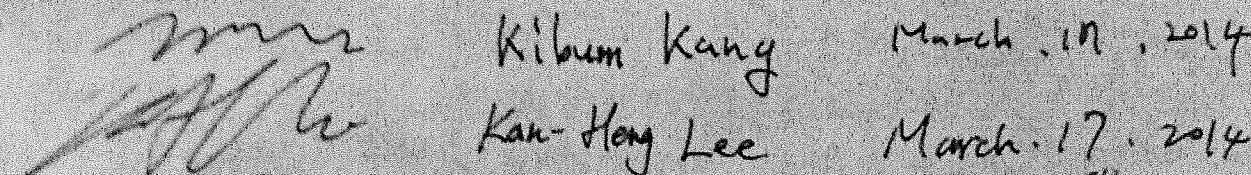 Kibum Kang March. 17, 2014
Kan-Heng Lee March. 17. 2014